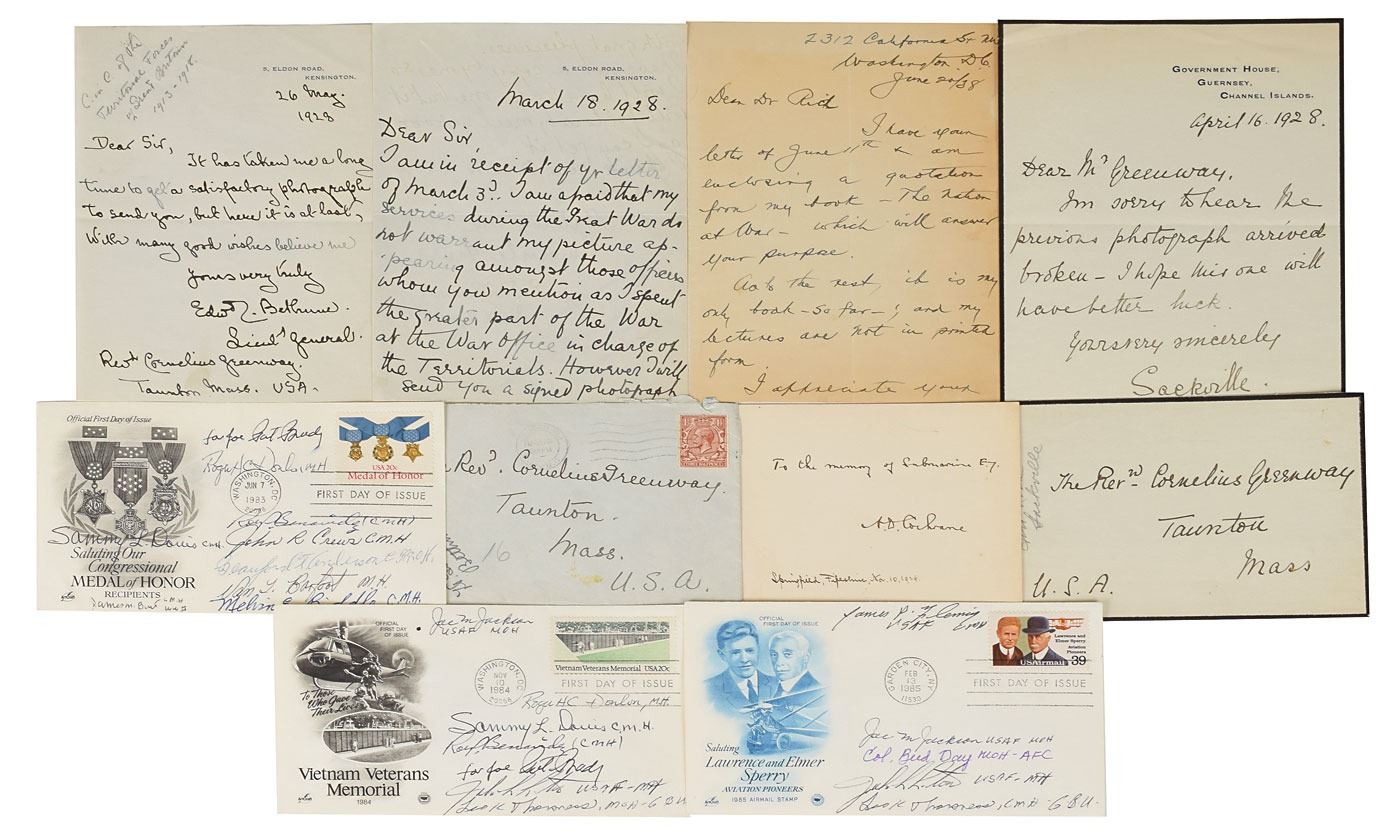 C in C of the
Territorial Forces
Great Britain
1913-1918.
5, ELDON ROAD,
KENSINGTON.
26 May.
1928
Dear Sir,
It has taken me a long
time to get a satisfactory photograph
to send you, but here it is at last,
With many good wishes believe me
Yours very truly
Edwd. Bethune.
Lieut General.
Revd Cornelius Greenway.
Taunton Mass. USA.
5, ELDON ROAD,
KENSINGTON.
March 18. 1928.
Dear Sir,
I am in receipt of yr letter
of March 3d. I am afraid that my
services during the Great War do
not warrant my picture ap-
pearing amongst those officers
whom you mention as I spent
the greater part of the War
at the War Office in charge of
the Territorials. However I will
send you a signed photograph
2312 California St NW
Washington D.C.
June 20/38
Dear Dr Rich
I have your
letter of June 11th & am
enclosing a quotation
from my book - The Nation
at War - which will answer
your purpose.
As to the rest, it is my
only book - so far - ; and my
lectures are not in printed
form.
I appreciate your
GOVERNMENT HOUSE,
GUERNSEY,
CHANNEL ISLANDS.
April 16. 1928.
Dear Mr Greenway,
I'm sorry to hear the
previous photograph arrived
broken - I hope this one will
have better luck.
Yours very sincerely
Sackville.
Official First Day of Issue
for Joe Pat Brady
Roger H.C. Donlon, M.H.
USA 20c
Medal of Honor
WASHINGTON, DC
JUN 7
1983
20066
FIRST DAY OF ISSUE
Roy P. Benavidez (C.M.H)
Sammy L. Davis C.M.H.
John R Crews C.M.H.
Saluting Our
Congressional
MEDAL of HONOR
RECIPIENTS
Beauford T. Anderson
M.H.
Melvin E. Biddle C.M.H.
ArtCraft
Revd. Cornelius Greenway.
Taunton.
Mass.
U.S.A.
16
To the memory of Submarine E7.
A.D. Cochrane
Springfield, Fifeshire, Nov. 10, 1928.
Sackville
The Revd Cornelius Greenway
Taunton
Mass
U.S.A.
OFFICIAL
FIRST DAY
OF ISSUE
Joe M Jackson
USAF MOH
Vietnam Veterans Memorial USA 20c
WASHINGTON, DC
NOV
10
1984
20066
FIRST DAY OF ISSUE
To Those
Who Gave
Their Lives
Roger HC Donlon, M.H.
Sammy L. Davis C.M.H.
Roy P. Benavidez (CMH)
for Joe Pat Brady
USAF-MH
Leo K Thorsness, MOH - G.B.U.
Vietnam Veterans
Memorial
1984
ArtCraft
OFFICIAL
FIRST DAY OF ISSUE
James P. Fleming
USAF CMH
Lawrence and
Elmer Sperry
Aviation
Pioneers
USAirmail 39
GARDEN CITY, NY
FEB
13
1985
11530
FIRST DAY OF ISSUE
Joe M Jackson USAF MOH
Col. Bud Day MOH-AFC
USAF-MH
Leo K Thorsness, CMH - G.B.U.
Saluting
Lawrence and Elmer
Sperry
AVIATION PIONEERS
1985 AIRMAIL STAMP
ArtCraft